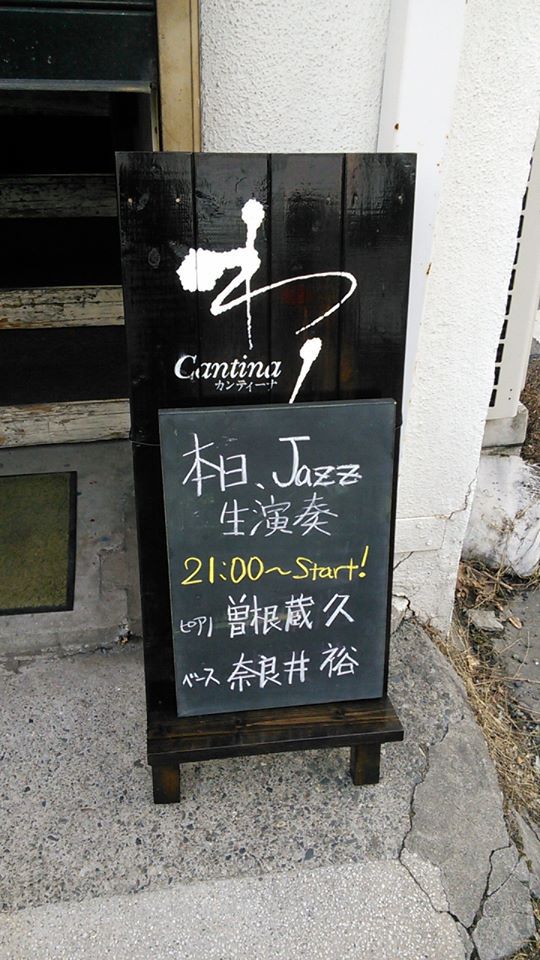 わ
Cantina
カンティーナ
本日、Jazz
生演奏
21:00〜Start!
ピアノ 曽根蔵久
ベース 奈良井裕